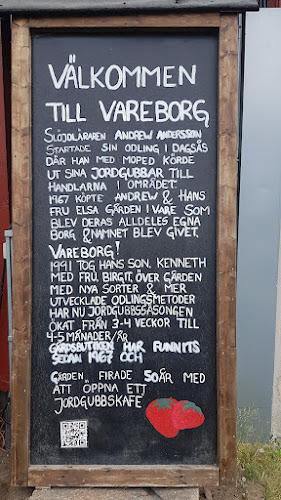 VÄLKOMMEN
TILL VAREBORG
SLÖJDLÄRAREN ANDREW ANDERSSON
STARTADE SIN ODLING I DAGSÅS
DÄR HAN MED MOPED KÖRDE
UT SINA JORDGUBBAR TILL
HANDLARNA I OMRÅDET.
1967 KÖPTE ANDREW & HANS
FRU ELSA GÅRDEN I VARE SOM
BLEV DERAS ALLDELES EGNA
BORG & NAMNET BLEV GIVET,
VAREBORG!
1991 TOG HANS SON, KENNETH
MED FRU BIRGIT, ÖVER GÅRDEN
MED NYA SORTER & MER
UTVECKLADE ODLINGSMETODER
HAR NU JORDGUBBSSÄSONGEN
ÖKAT FRÅN 3-4 VECKOR TILL
4-5 MÅNADER/ÅR
GÅRDSBUTIKEN HAR FUNNITS
SEDAN 1967 OCH
GÅRDEN, FIRADE 50 ÅR MED
ATT ÖPPNA ETT
JORDGUBBSKAFE